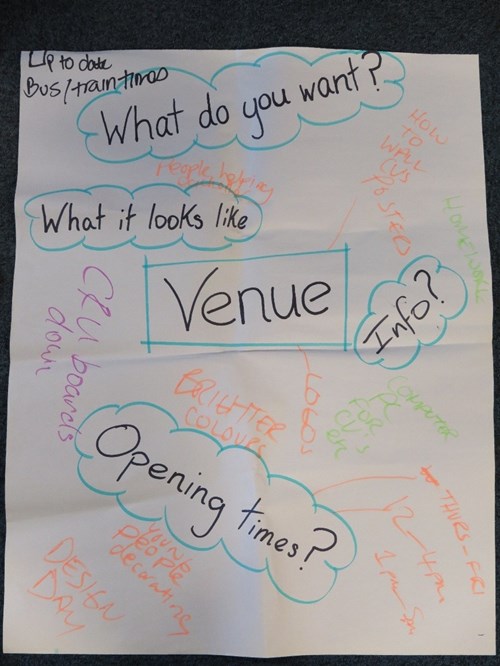 Up to date
Bus/train times
What do you want?
People helping
HOW
TO
CVs
POSTERS
What it looks like
HOMEWORK
Venue
Info?
CRU boards
down
BRIGHTER
COLOURS
LOGOS
COMPUTER
FOR
CV's
Opening times?
THURS - FRI
12-4pm
1pm-5pm
YOUNG
PEOPLE
decorating
DESIGN
DAY